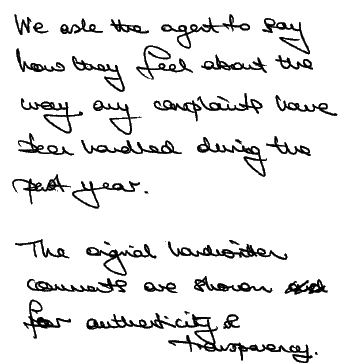 We ask the agent to say
how they feel about the
way any complaints have
been handled during the
past year.
The original handwritten
comments are shown
for authenticity &
transparency.